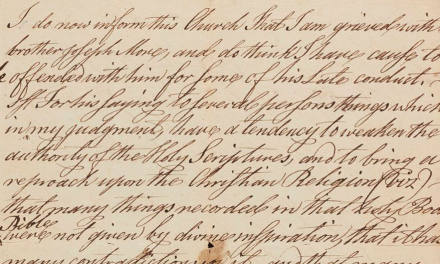 I do now inform this Church that I am grieved with
brother Joseph More, and do think I have cause to
offended with him for some of his late conduct,
For his saying to several persons things which
in my judgment, have a tendency to weaken the
authority of the Holy Scriptures, and to bring a
reproach upon the Christian Religion (viz)
that many things recorded in that Holy Boo
Bible
were not given by divine inspiration, that it has
many contradictions in it, and that many